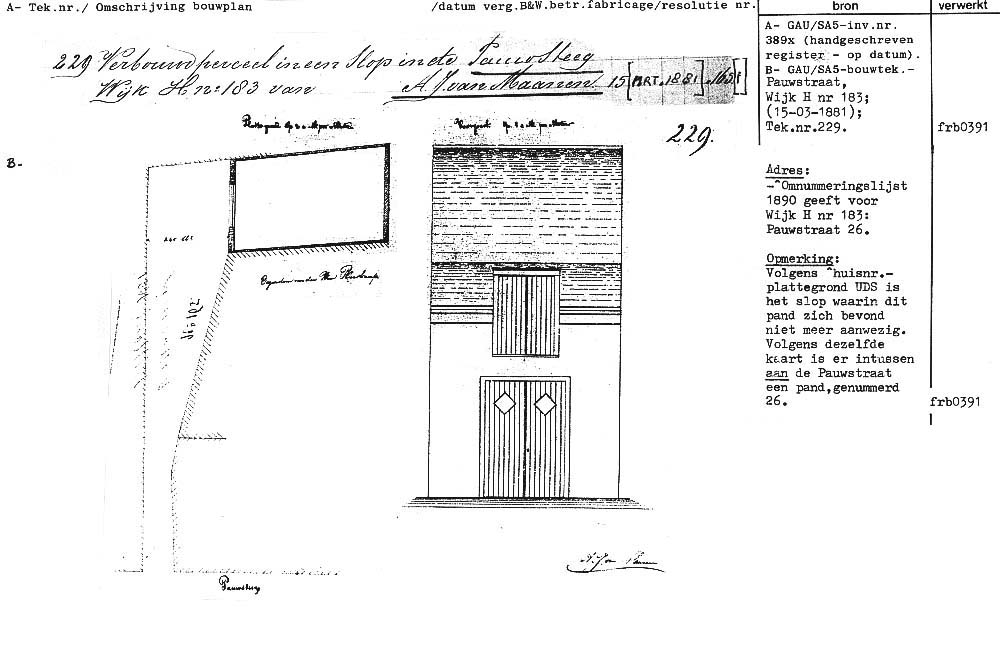 A- Tek.nr./ Omschrijving bouwplan /datum verg.B&W.betr.fabricage/resolutie nr. bron verwerkt
229 Verbouw perceel in een Slop in de Pauwsteeg
Wijk H no 183 van A.J. van Maanen. 15 [MRT. 1881]
229.
B-
Pauwsteeg
A- GAU/SA5-inv.nr.
389x (handgeschreven
register - op datum).
B- GAU/SA5-bouwtek.-
Pauwstraat,
Wijk H nr 183;
(15-03-1881);
Tek.nr.229. frb0391
Adres:
-^Omnummeringslijst
1890 geeft voor
Wijk H nr 183:
Pauwstraat 26.
Opmerking:
Volgens ^huisnr.-
plattegrond UDS is
het slop waarin dit
pand zich bevond
niet meer aanwezig.
Volgens dezelfde
kaart is er intussen
aan de Pauwstraat
een pand,genummerd
26. frb0391